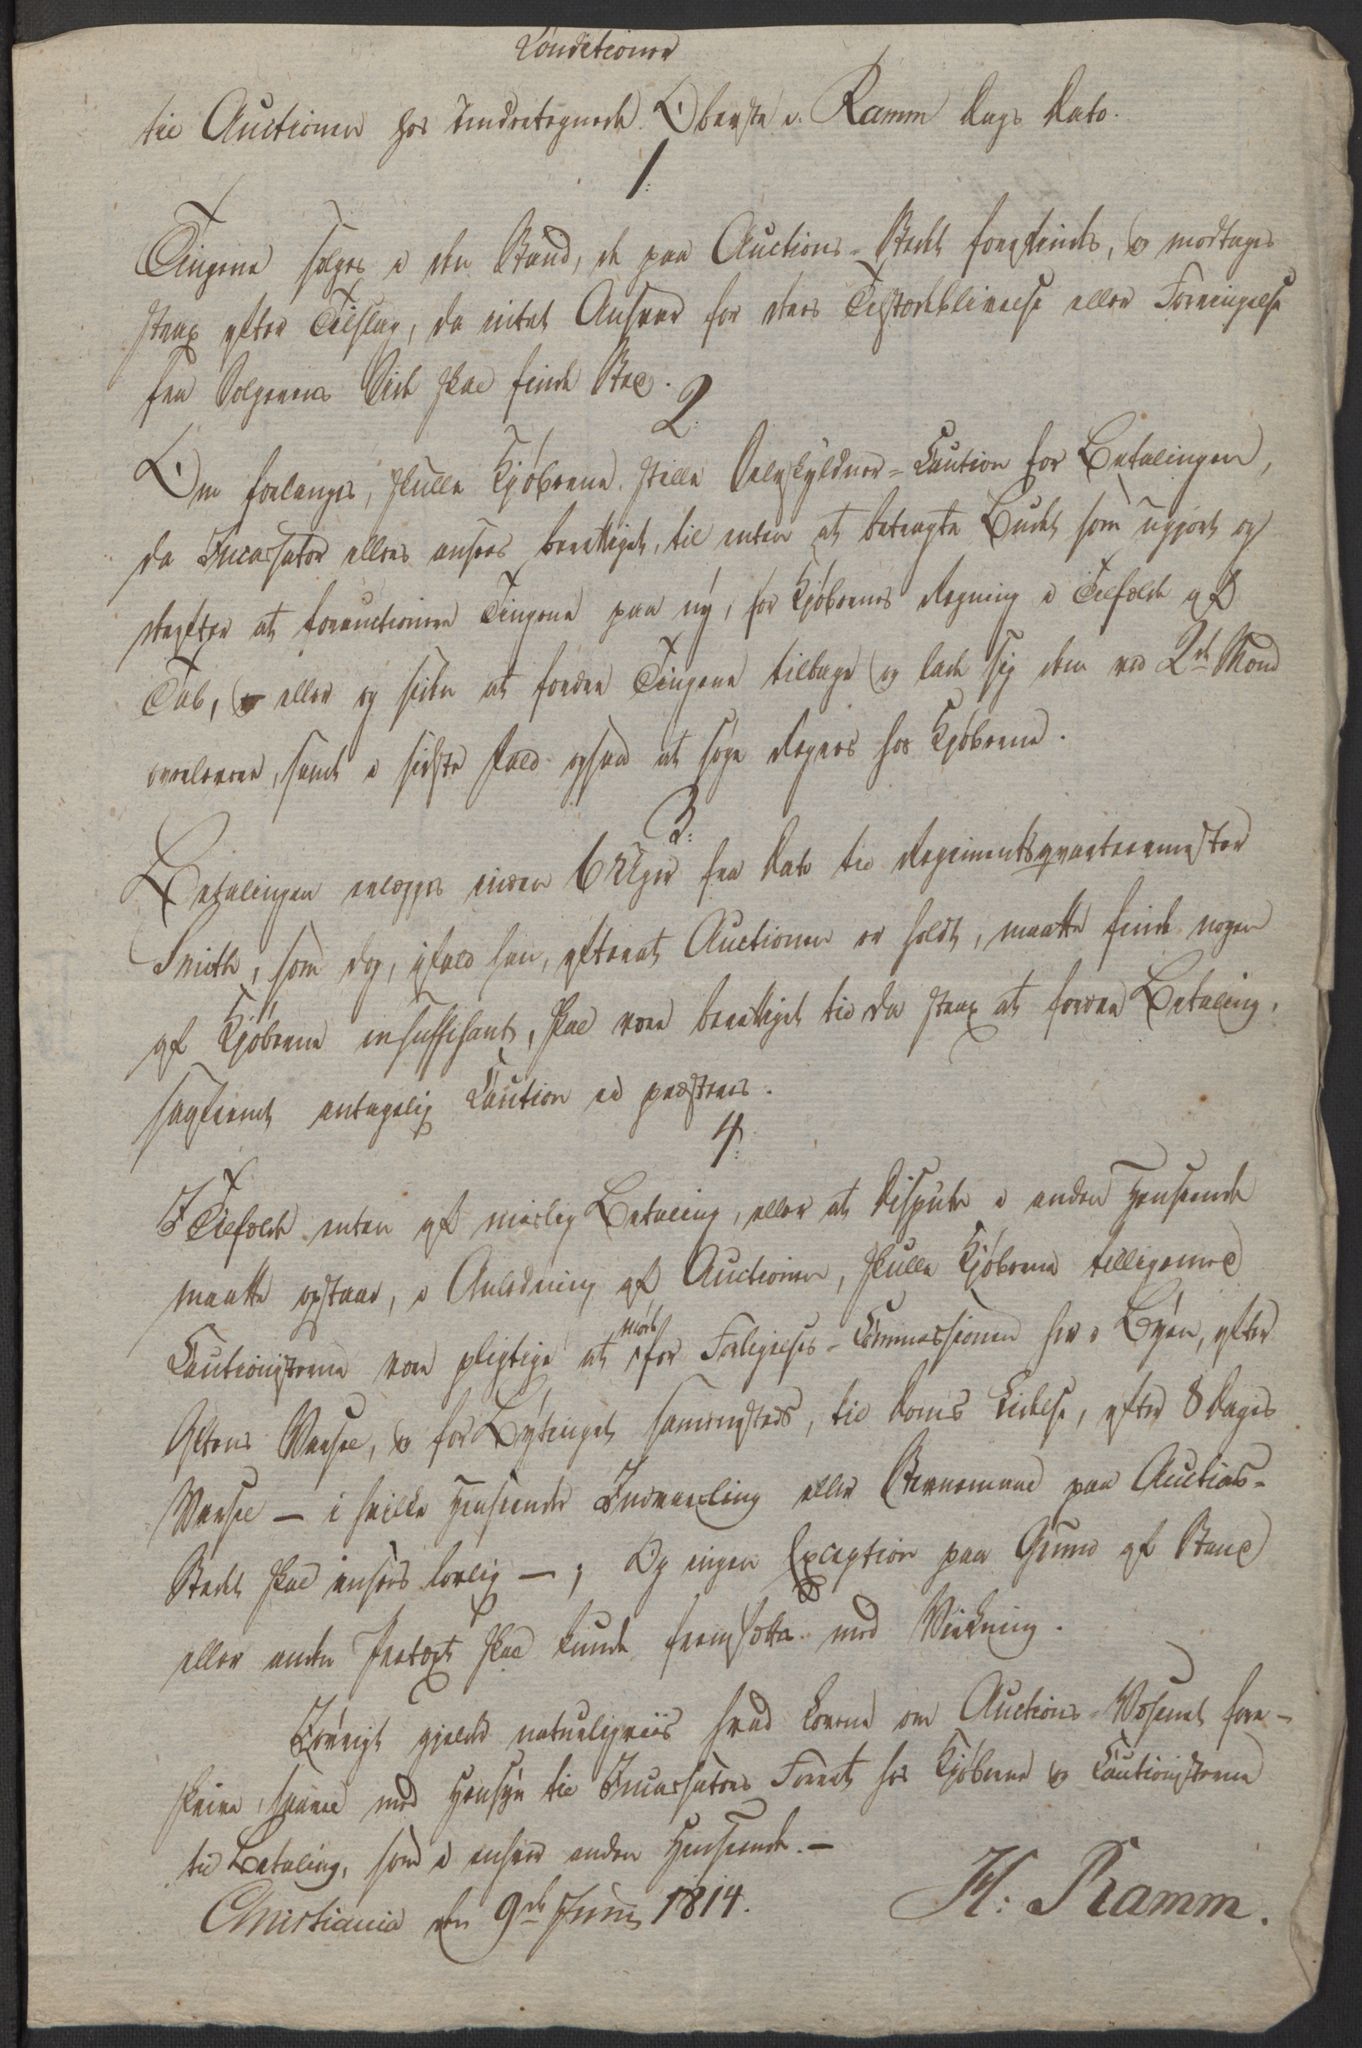 Conditioner
til Auctionen hos undertegnede Oberste v. Ramm Dags Dato.
1:
Tingene sælges i den Stand, de paa Auctions-Stedet forefindes, og modtages
strax efter Tilslag, da intet Ansvar for deres Tilstedeblivelse eller Forringelse
fra Sælgerens Side skal finde Sted.
2:
Om forlanges, skulle Kjøberne stille Selvskyldner-Caution for Betalingen,
da Incassator ellers ansees berettiget, til enten at betragte Budet som ugjort og
derefter at forauctionere Tingene paa ny, for Kjøbernes Regning i Tilfælde af
Tab, eller og siden at fordre Tingene tilbage og lade sig dem ved 2de Mænd
overlevere, samt i sidste Fald ogsaa at søge Regres hos Kjøberne.
3:
Betalingen erlægges inden 6 Uger fra Dato til Regimentsqvarteermester
Smith, som dog, ifald han, efterat Auctionen er holdt, maatte finde nogen
af Kjøberne insuffisant, skal være berettiget til da strax at fordre Betaling,
saafremt antagelig Caution ei præsteres.
4:
I Tilfælde enten af mislig Betaling, eller at Dispute i anden Henseende
maatte opstaae, i Anledning af Auctionen, skulle Kjøberne tilligemed
Cautionisterne være pligtige at møde for Forligelses-Commissionen her i Byen, efter
Aftens Varsel, og for Bytinget sammesteds, til Doms Lidelse, efter 8 Dages
Varsel — i hvilke Henseender Indvarsling eller Stævnemaal paa Auctions-
Stedet skal ansees lovlig —, Og ingen Exception paa Grund af Stand
eller anden Prætext skal kunde fremsættes med Virkning.
Iøvrigt gjelder naturligviis hvad Lovene om Auctions-Væsenet fore-
skrive, saavel med Hensyn til Incassators Forret hos Kjøberne og Cautionisterne
til Betaling, som i enhver anden Henseende. —
Christiania den 9de Junii 1814.
H: Ramm.